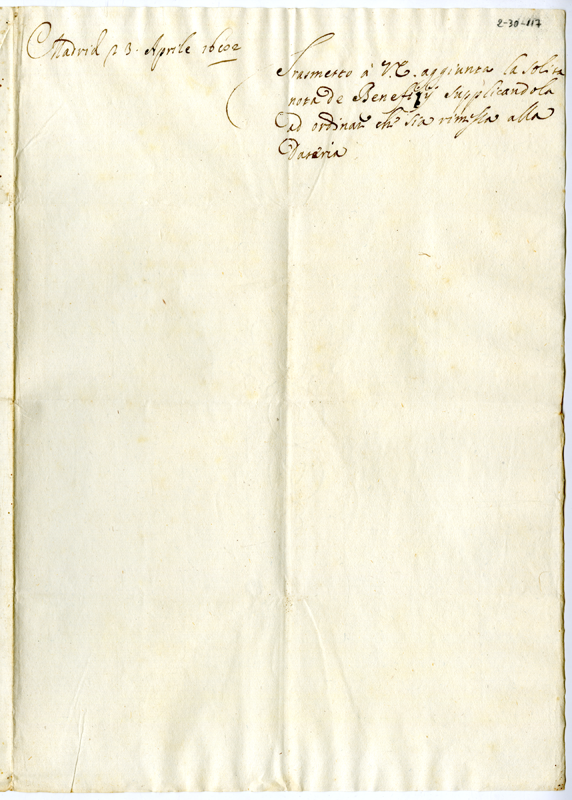 2-30-117
Madrid 23. Aprile
Trasmetto à V.E. aggiunta la solita
nota de Beneficij supplicandola
ad ordinar che sia rimessa alla
Dataria